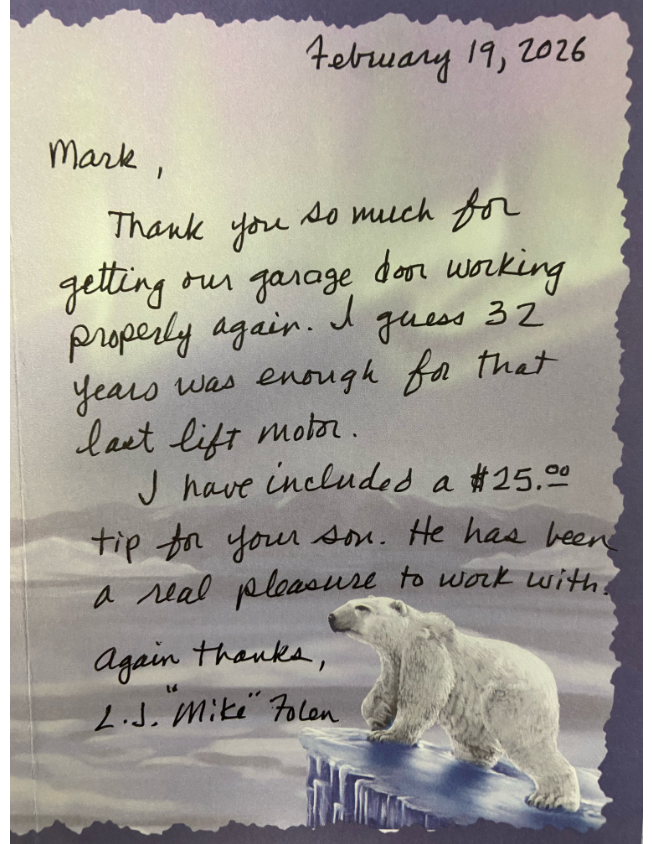 February 19, 2026
Mark,
Thank you so much for
getting our garage door working
properly again. I guess 32
years was enough for that
last lift motor.
I have included a $25.00
tip for your son. He has been
a real pleasure to work with.
Again thanks,
L.J. "Mike" Folen